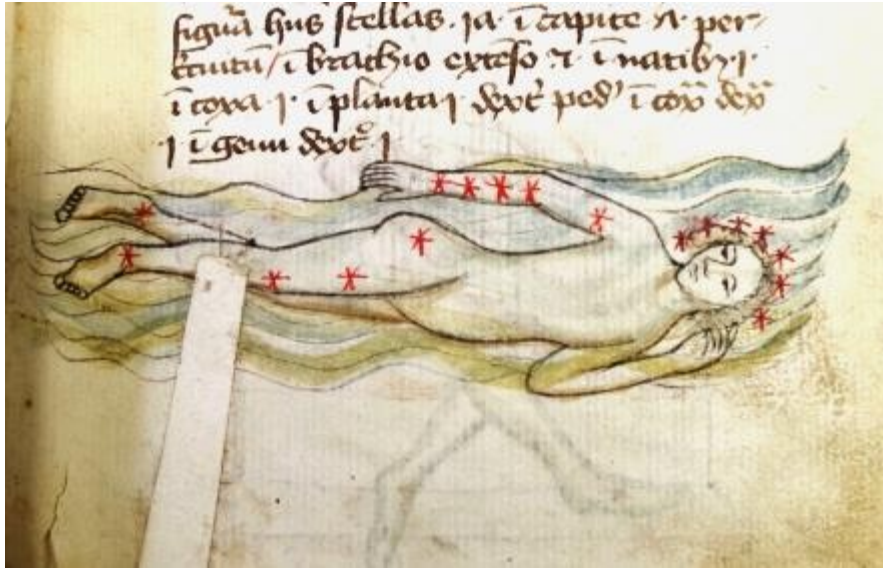 figurā hūs stellas · ia · ī capite · ꝛ · per
ī brachio extēso ꝛ ī natiby · i ·
ī coxa · i · ī planta · i · dext' ped' ī cox̄ dex̄
i ī genu dext° · i